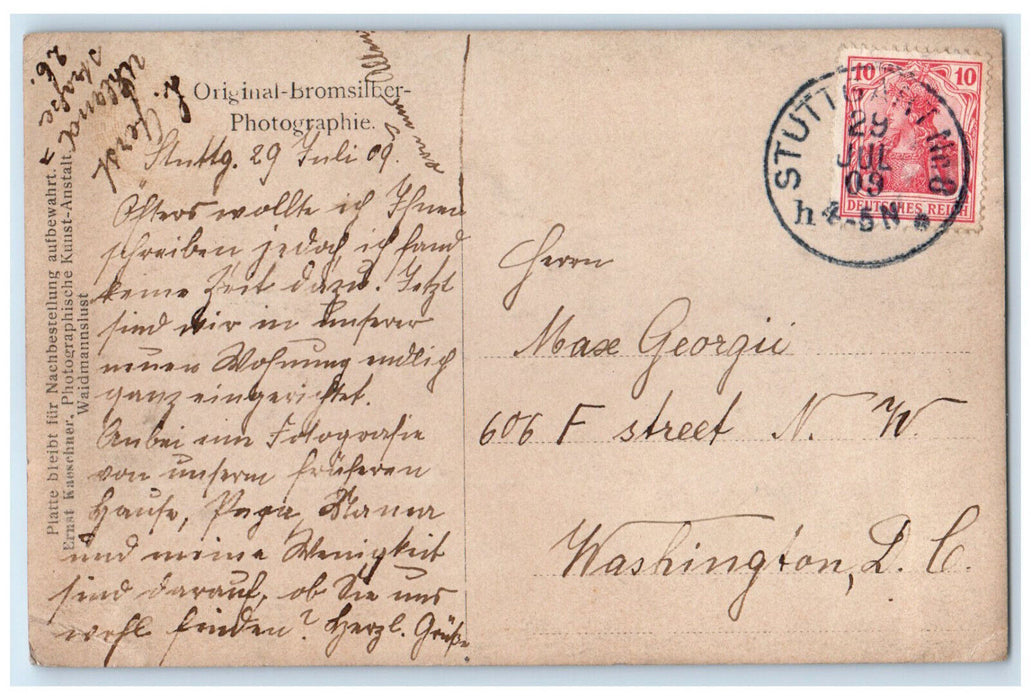 Original-Bromsilber-
Photographie.
Stuttg. 29 Juli 09.
Öfters wollte ich Ihnen
schreiben jedoch ich fand
keine Zeit dazu. Jetzt
sind wir in unserer
neuen Wohnung endlich
ganz eingerichtet.
Anbei eine Fotografie
von unserm früheren
Hause, Papa, Mama
und meine Wenigkeit
sind darauf, ob Sie uns
wohl finden? Herzl. Grüße
von
Platte bleibt für Nachbestellung aufbewahrt.
Ernst Kaeschner, Photographische Kunst-Anstalt.
Waidmannslust
10 10
DEUTSCHES REICH
STUTTGART Nr. 8
29
JUL
09
h 4-5 N
Herrn
Max Georgii
606 F street N. W.
Washington, D. C.